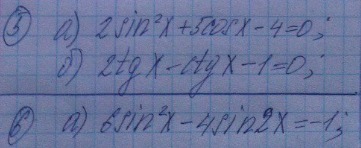 5 а) 2sin²x+5cosx-4=0;
б) 2tgx-ctgx-1=0;
6 а) 6sin²x-4sin2x=-1;